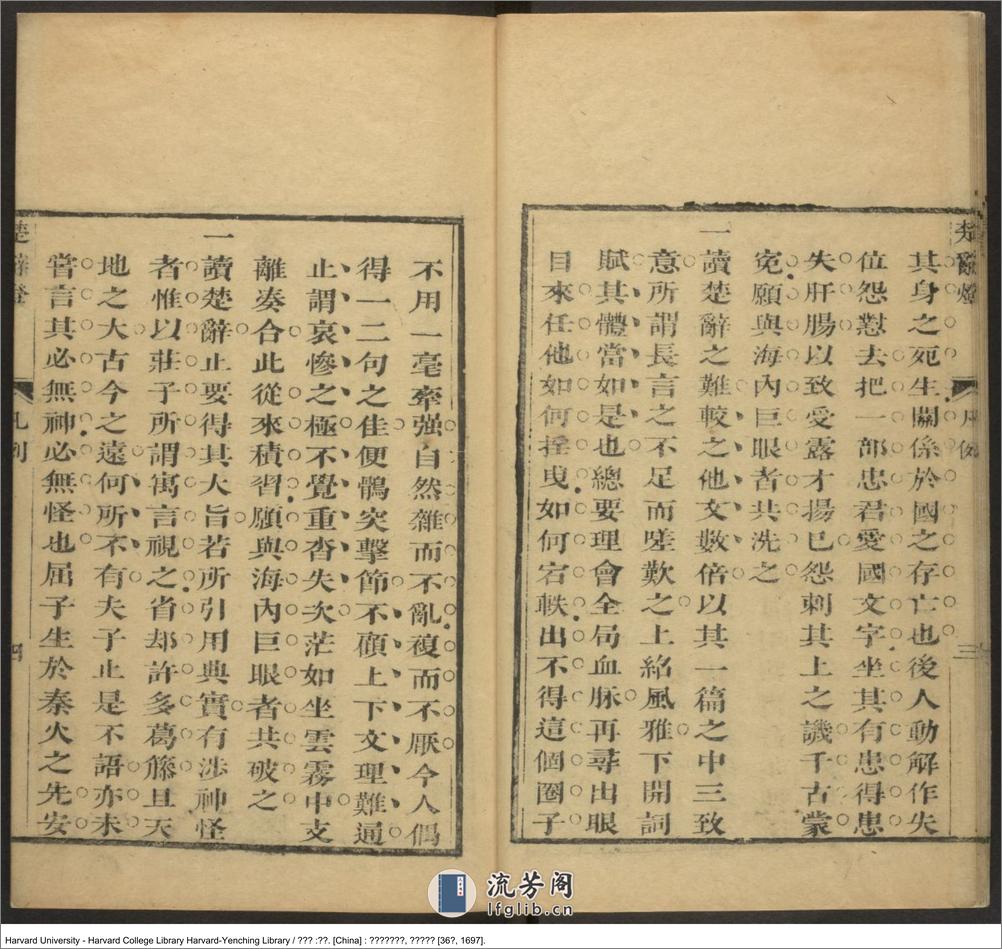 楚辭燈
凡例
三
其身之死生關係於國之存亡也後人動解作失
位怨懟去把一部忠君愛國文字坐其有患得患
失肝腸以致受露才揚已怨刺其上之譏千古蒙
寃願與海內巨眼者共洗之
一讀楚辭之難較之他文數倍以其一篇之中三致
意所謂長言之不足而嗟歎之上紹風雅下開詞
賦其體當如是也總要理會全局血脉再尋出眼
目來任他如何拴曳如何宕軼出不得這個圈子
不用一毫牽强自然雜而不亂複而不厭今人偶
得一二句之佳便鶻突擊節不顧上下文理難通
止謂哀慘之極不覺重沓失次茫如坐雲霧中支
離凑合此從來積習願與海內巨眼者共破之
一讀楚辭止要得其大旨若所引用典實有涉神怪
者惟以莊子所謂寓言視之省却許多葛藤且天
地之大古今之遠何所不有夫子止是不語亦未
嘗言其必無神必無怪也屈子生於秦火之先安
楚辭燈
凡例
四
流芳阁
lfglib.cn
Harvard University - Harvard College Library Harvard-Yenching Library / ??? :??. [China] : ???????, ????? [36?, 1697].